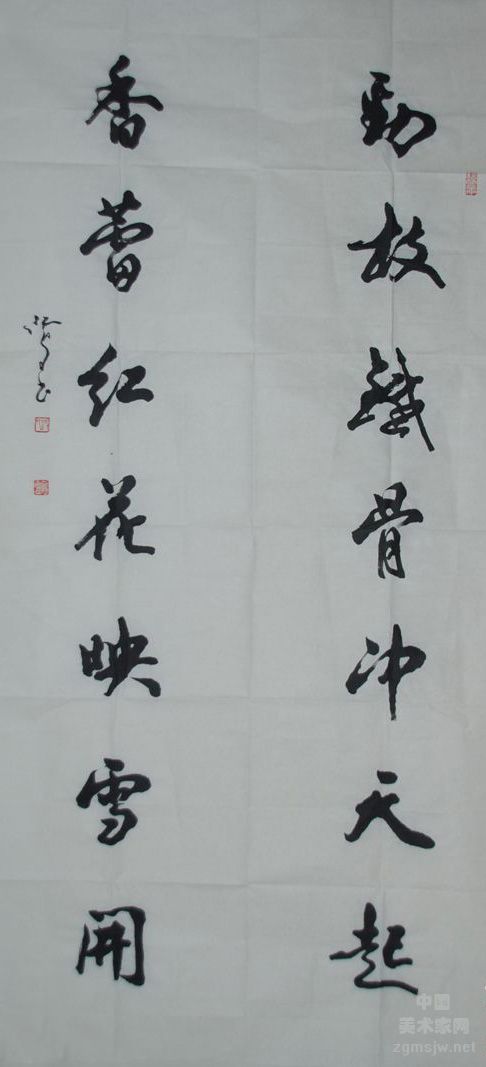 勁枝鐵骨冲天起
香蕾红花映雪開
中国
美术家网
zgmsjw.net